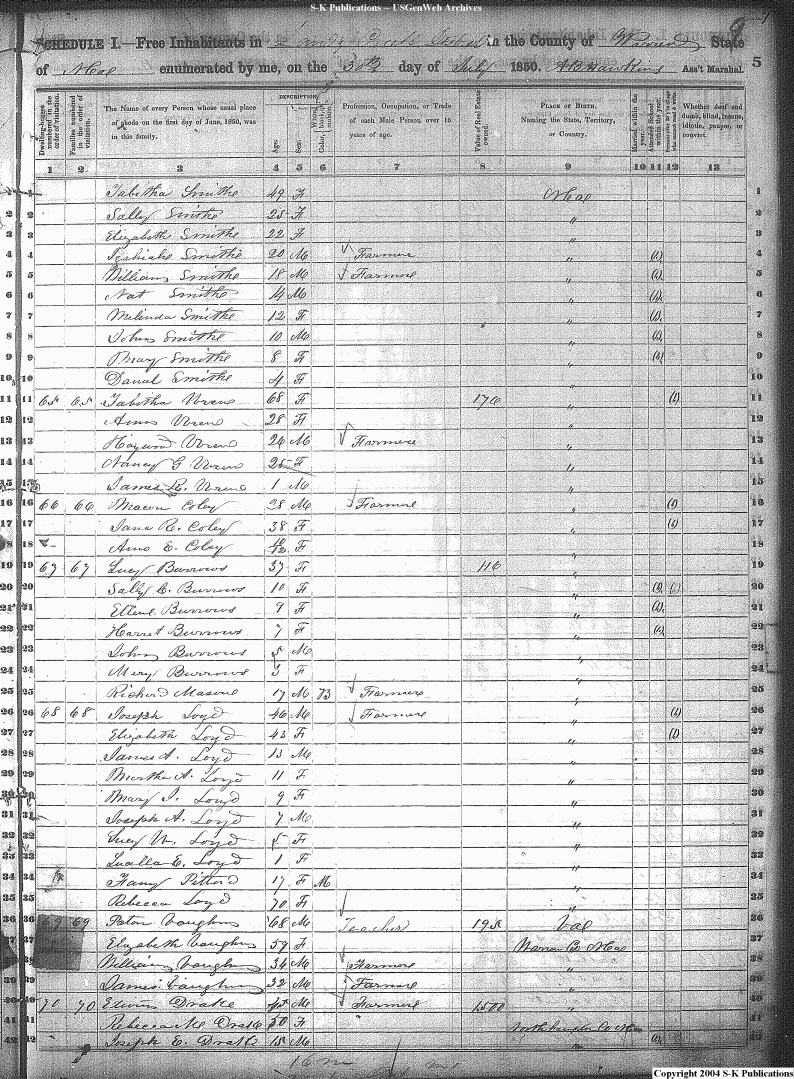 S-K Publications -- USGenWeb Archives
9
SCHEDULE I.—Free Inhabitants in Creek in the County of Warren State
of enumerated by me, on the 30th day of July 1850. A B Hawkins Ass't Marshal. 5
Dwelling-houses numbered in the order of visitation.
Families numbered in the order of visitation.
The Name of every Person whose usual place of abode on the first day of June, 1850, was in this family.
DESCRIPTION.
Age.
Sex.
Color
Profession, Occupation, or Trade of each Male Person over 15 years of age.
Value of Real Estate owned.
PLACE OF BIRTH. Naming the State, Territory, or Country.
Married within the year.
Attended School within the year.
Persons over 20 y'rs of age who cannot read & write.
Whether deaf and dumb, blind, insane, idiotic, pauper, or convict.
1 2 3 4 5 6 7 8 9 10 11 12 13
1 Tabitha Smithe 49 F 1
2 Sally Smithe 25 F " 2
3 Elizabeth Smithe 22 F " 3
4 Smithe 20 M Farmer " (1) 4
5 William Smithe 18 M Farmer " (1) 5
6 Nat Smithe 14 M " (1) 6
7 Melinda Smithe 12 F " (1) 7
8 John Smithe 10 M " (1) 8
9 Mary Smithe 8 F " (1) 9
10 Smithe 4 F " 10
11 65 65 Tabitha 68 F 170 " (1) 11
12 28 F " 12
13 26 M Farmer " 13
14 Nancy G 25 F " 14
15 James R. 1 M " 15
16 66 66 Macon Coley 28 M Farmer " (1) 16
17 Jane R. Coley 38 F " (1) 17
18 E. Coley F " 18
19 67 67 Lucy Burrows 37 F 110 " 19
20 Sally C. Burrows 10 F " (1) (1) 20
21 Burrows 9 F " (1) 21
22 Harret Burrows 7 F " (1) 22
23 John Burrows 5 M " 23
24 Mery Burrows 3 F " 24
25 Richerd Masone 17 M B Farmer " 25
26 68 68 Joseph Loyd 46 M Farmer " (1) 26
27 Elizabeth Loyd 43 F " (1) 27
28 James A. Loyd 13 M " 28
29 Martha A. Loyd 11 F " 29
30 Mary J. Loyd 9 F " 30
31 Joseph A. Loyd 7 M " 31
32 Lucy W. Loyd 5 F " 32
33 Lualla E. Loyd 1 F " 33
34 Fanny 17 F M " 34
35 Rebecca Loyd 70 F " 35
36 69 69 Vaughn 68 M Teacher 195 Va 36
37 Elizabeth Vaughn 59 F Warren Co 37
38 William Vaughn 34 M Farmer " 38
39 James Vaughn 32 M Farmer " 39
40 70 70 Edwin Drake M Farmer 1500 " 40
41 Rebecca M Drake 50 F Northhampton Co 41
42 Joseph E. Drake 15 M " (1) 42
16 m
Copyright 2004 S-K Publications